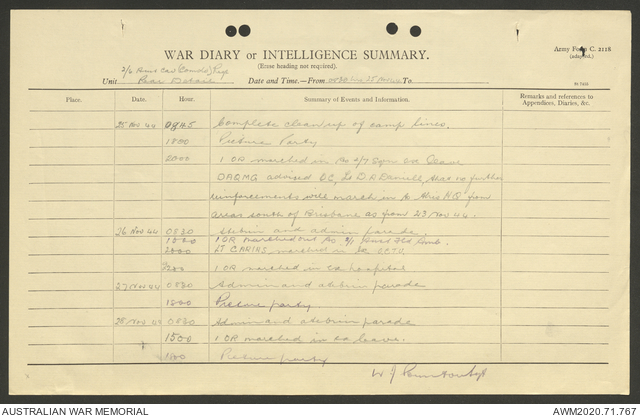 WAR DIARY or INTELLIGENCE SUMMARY.
(Erase heading not required).
Army Form C. 2118
(adapted.)
Unit Rear Details Date and Time.—From 25 Nov To
Place. Date. Hour. Summary of Events and Information. Remarks and references to Appendices, Diaries, &c.
25 Nov 44 0845 Complete cleanup of camp lines.
1800 Picture Party
2000 1 OR marched in ex leave
DAQMG advised OC, Lt D R Daniell, that no further
reinforcements will march in to this HQ from
areas south of Brisbane as from 23 Nov 44.
26 Nov 44 0830 atebrin and admin parade
1OR marched out to 2/1 Aust Fld Amb.
2000 Lt marched in
1 OR marched in ex hospital
27 Nov 44 0830 Admin and atebrin parade
1800 Picture party.
28 Nov 44 0830 Admin and atebrin parade
1500 1 OR marched in ex leave.
1800 Picture party
W J
AUSTRALIAN WAR MEMORIAL
AWM2020.71.767